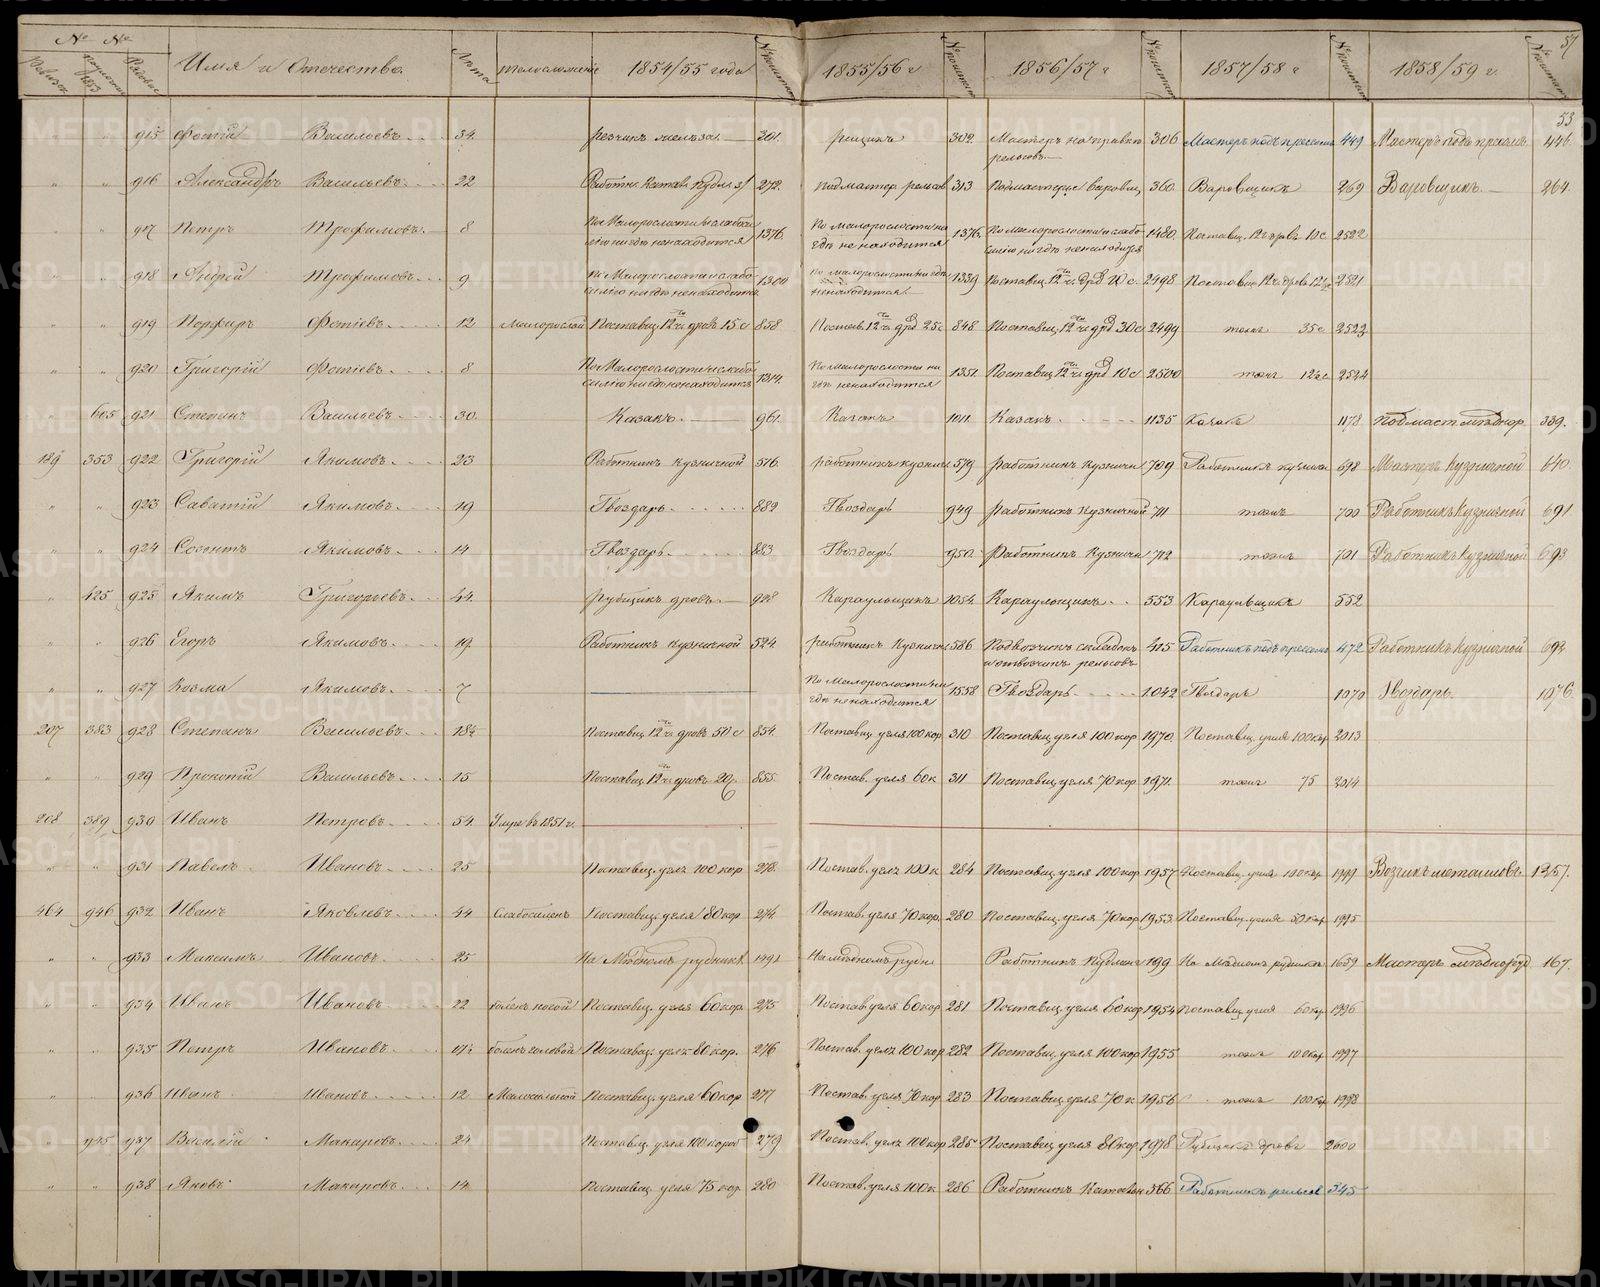 № №
Имя и Отечество. Лета телосложение 1854/55 года 1855/56 г 1856/57 г 1857/58 г 1858/59 г. 57
53
915 Фотій Васильевъ 34. резчикъ железа. 301. 302. Мастеръ на правки рельсовъ 306 Мастеръ подъ прессомъ 449 Мастеръ подъ прессомъ 446.
916 Александръ Васильевъ 22 272. подмастер. рельсов 313 360. Варовщикъ 269 Варовщикъ. 264.
917 Петръ Трофимовъ. 8 По Малорослости и слабосилію нигде ненаходится 1376. По малорослости нигдѣ не находится 1376. По Малорослости и слабосилію нигдѣ ненаходится 1480. Поставщ. 12 чр. дровъ 10 с 2522
918 Андрей Трофимовъ. 9 По Малорослости и слабосилію нигде ненаходится 1300 По малорослости нигде ненаходится 1339 Поставщ. 12 чр. др 20 с. 2498 Поставщ. 12 ч. дровъ 12½ 2521
919 Порфиръ Фотіевъ. 12 Малорослой Поставщ. 12 чр дровъ 15 с 858 Постав. 12 чр др 25 с 848 Поставщ. 12 чр др 30 с 2499 тоже 35 с 2523
920 Григорій Фотіевъ. 8 По Малорослости и слабосилію нигде ненаходится 1314. По малорослости нигде ненаходится 1351 Поставщ. 12 чр др 10 с 2500 тоже 12½ с 2524
605 921 Степанъ Васильевъ. 30. Казакъ. 961. Казакъ 1011. Казакъ. 1135 Казакъ 1178 339.
189 353 922 Григорій Якимовъ. 23 Работникъ кузничной 516. работникъ кузнич 519 работникъ Кузнич 709 Работникъ кузнич 698 Мастеръ кузничной 640.
923 Саватій Якимовъ. 19 Гвоздарь 882 Гвоздарь 949 работникъ Кузничной 711 тоже 700 Работникъ Кузничной 691
924 Созонтъ Якимовъ. 14 Гвоздарь 883 Гвоздарь 950. работникъ Кузнич 712 тоже 701 Работникъ Кузничной 693
425 925 Якимъ Григорьевъ. 44. Рубщикъ дровъ. 928 Караульщикъ 1054 Караульщикъ. 553 Караульщикъ 552
926 Егоръ Якимовъ. 19. Работникъ кузничной 524. работникъ Кузнич 586 Подвозчикъ складокъ и отвозчикъ рельсовъ 415 Работникъ подъ прессомъ 472 Работникъ Кузничной 692
927 Козма Якимовъ. 7 По Малорослости нигдѣ ненаходится 1558 Гвоздарь 1042 Гвоздарь 1070 Гвоздарь. 1076
207 383 928 Степанъ Васильевъ. 18½ Поставщ. 12 чр дровъ 50 с 854. Поставщ. угля 100 кор 310 Поставщ. угля 100 кор 1970. Поставщ. угля 100 кор 2013
929 Прокопій Васильевъ. 15 Поставщ. 12 чр дровъ 20 с 855 Постав. угля 60 к 311 Поставщ. угля 70 кор 1971. тоже 75 2014
208 389 930 Иванъ Петровъ. 54. Умре въ 1851 г.
931 Павелъ Ивановъ. 25 Поставщ. угля 100 кор 278. Постав. угля 100 к 284 Поставщ. угля 100 кор 1957 Поставщ. угля 100 кор 1999 Возчикъ металловъ. 1357.
464 946 932 Иванъ Яковлевъ. 44 Слабосиленъ Поставщ. угля 80 кор 274 Постав. угля 70 кор. 280 Поставщ. угля 70 кор 1953. Поставщ. угля 50 кор 1995
933 Максимъ Ивановъ. 25 На Мѣдномъ рудникѣ 1491 На мѣдномъ рудн Работникъ пудлинг 199 На Мѣдномъ рудникѣ 1659 167.
934 Иванъ Ивановъ. 22 боленъ ногой Поставщ. угля 60 кор 275 Постав угля 60 кор 281 Поставщ. угля 60 кор 1954 Поставщ. угля 60 кор. 1996
935 Петръ Ивановъ. 17½ боленъ головой Поставщ. угля 80 кор. 276 Постав. угля 100 кор 282 Поставщ. угля 100 кор 1955 тоже 100 кор 1997
936 Иванъ Ивановъ. 12 Малосильной Поставщ. угля 60 кор 277 Постав. угля 70 кор 283 Поставщ. угля 70 к 1956 тоже 100 кор 1998
945 937 Василій Макаровъ. 24 Поставщ. угля 100 короб 279 Постав. угля 100 кор 285 Поставщ. угля 80 кор 1978 Рубщикъ дровъ 2000
938 Яковъ Макаровъ. 14 Поставщ. угля 75 кор 280 Постав. угля 100 к 286 366 Работникъ рельсов 345